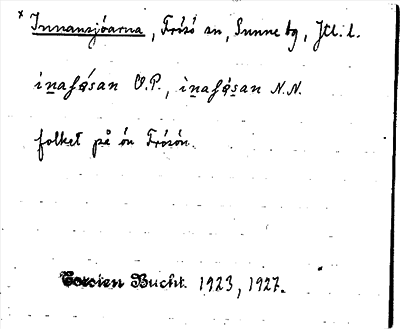 * Innansjöarna, Frösö sn, Sunne tg, Jtl. l.
ina𝑠ǻsan O.P., ina𝑠ǻsan N.N.
folket på ön Frösön.
Torsten Bucht. 1923, 1927.